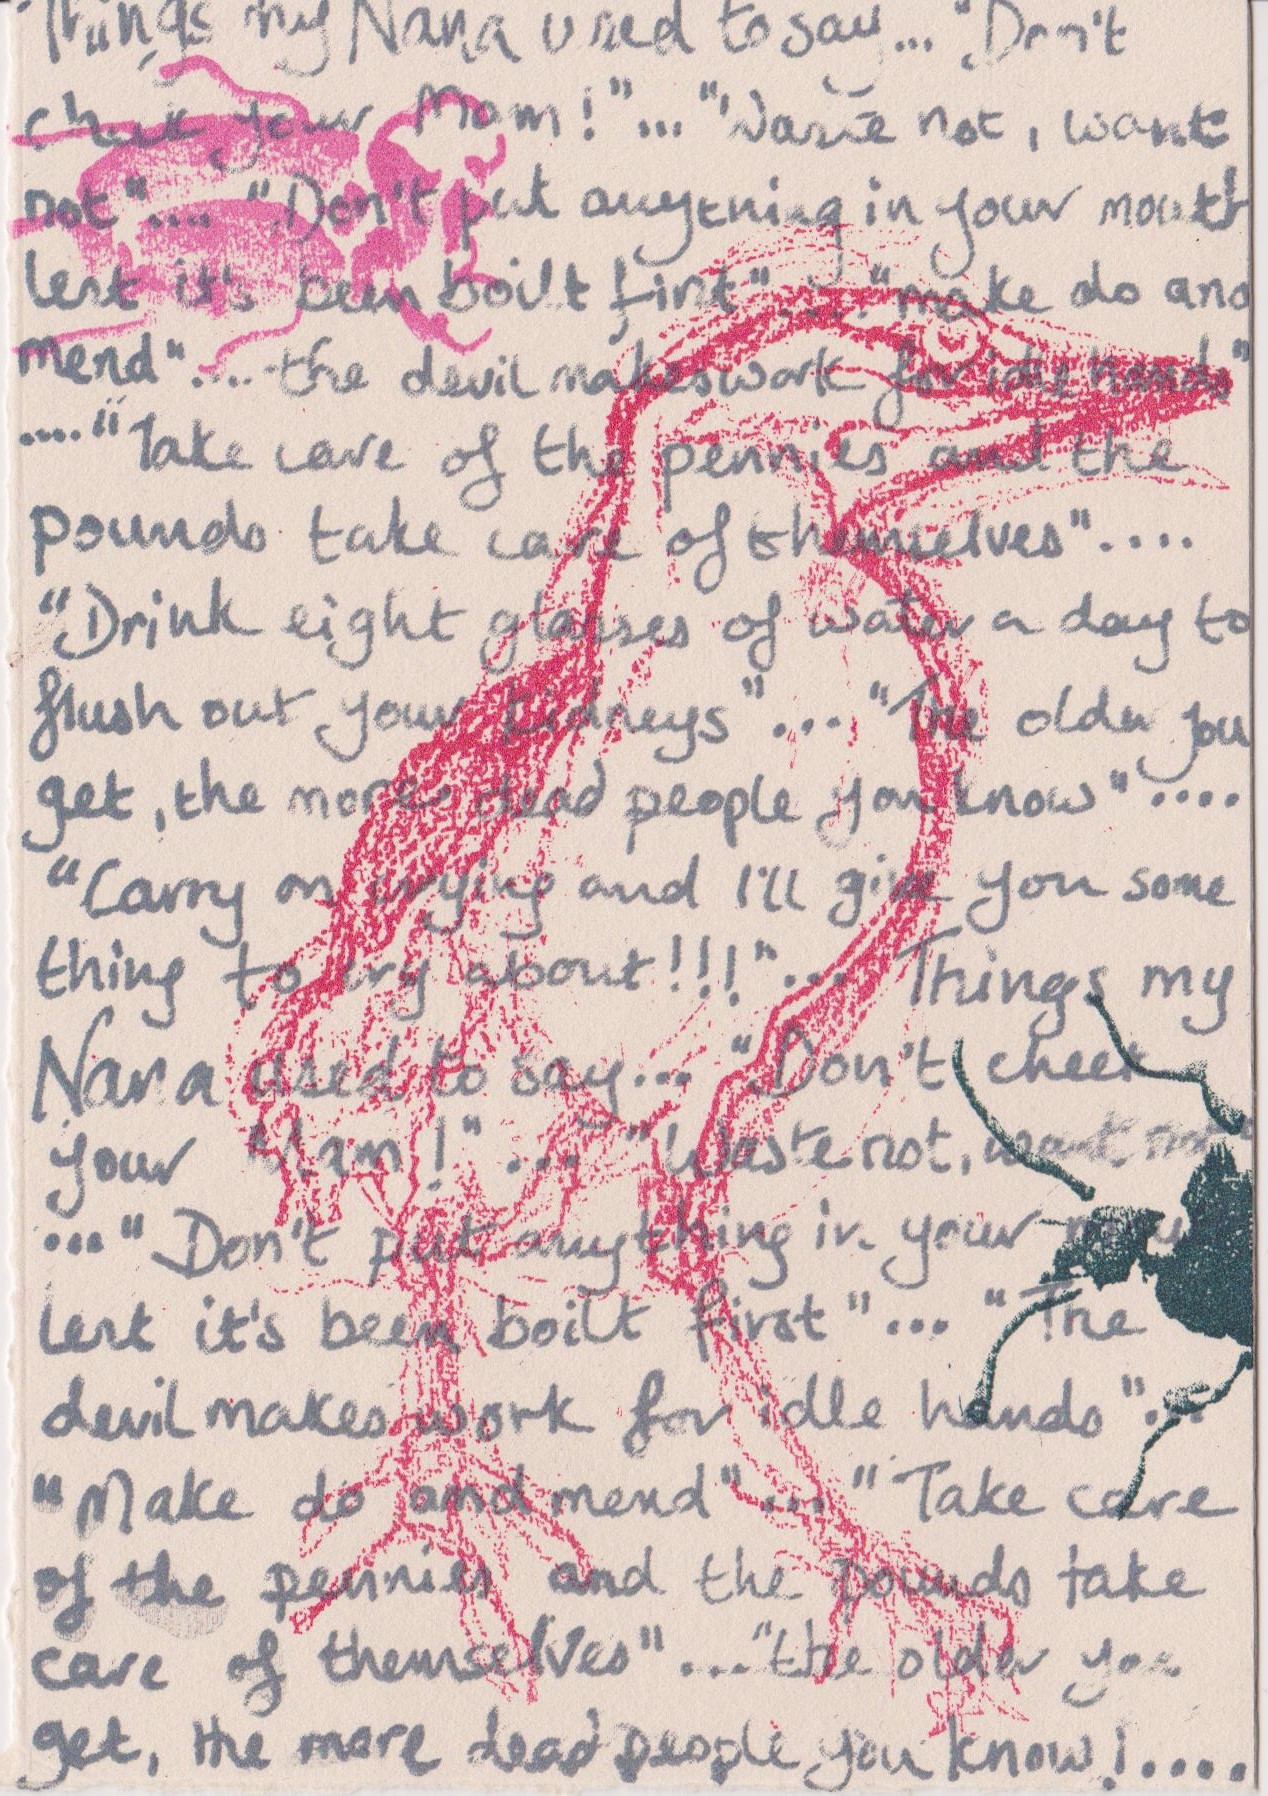 Things my Nana used to say... "Don't
cheek your Mam!"... "Waste not, want
not".... "Don't put anything in your mouth
lest it's been boilt first"...."make do and
mend"....the devil makes work for idle hands"
...."Take care of the pennies and the
pounds take care of themselves"....
"Drink eight glasses of water a day to
flush out your kidneys"... "The older you
get, the more dead people you know"....
"Carry on crying and I'll give you some
thing to cry about!!!"... Things my
Nana used to say... "Don't cheek
your Mam!" ... "Waste not, want not
..." Don't put anything in your
lest it's been boilt first"... "The
devil makes work for idle hands"...
"Make do and mend"..." Take care
of the pennies and the pounds take
care of themselves"...."the older you
get, the more dead people you know!.....